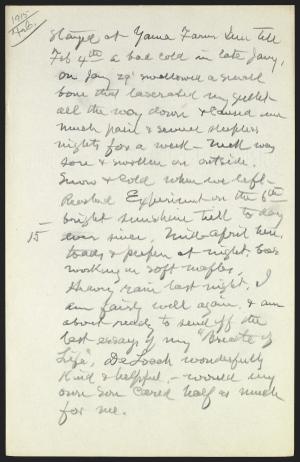 1915
Feb.
Stayed at Yama Farms Inn till
Feb 4th a bad cold in late Jany,
on Jany 29' swallowed a small
bone that lacerated my gullet
all the way down & caused me
much pain & several sleepless
nights for a week - Neck was
sore & swollen on outside.
Snow & cold when we left -
Reached Experiment on the 6th
bright sunshine till to day
15 ever since, Mid-April here,
toads & peepers at night, bees
working on soft maples,
Heavy rain last night, I
am fairly well again, & am
about ready to send off the
last essays of my "Breath of
Life", De Loach wonderfully
kind & helpful, - would my
own son cared half as much
for me.